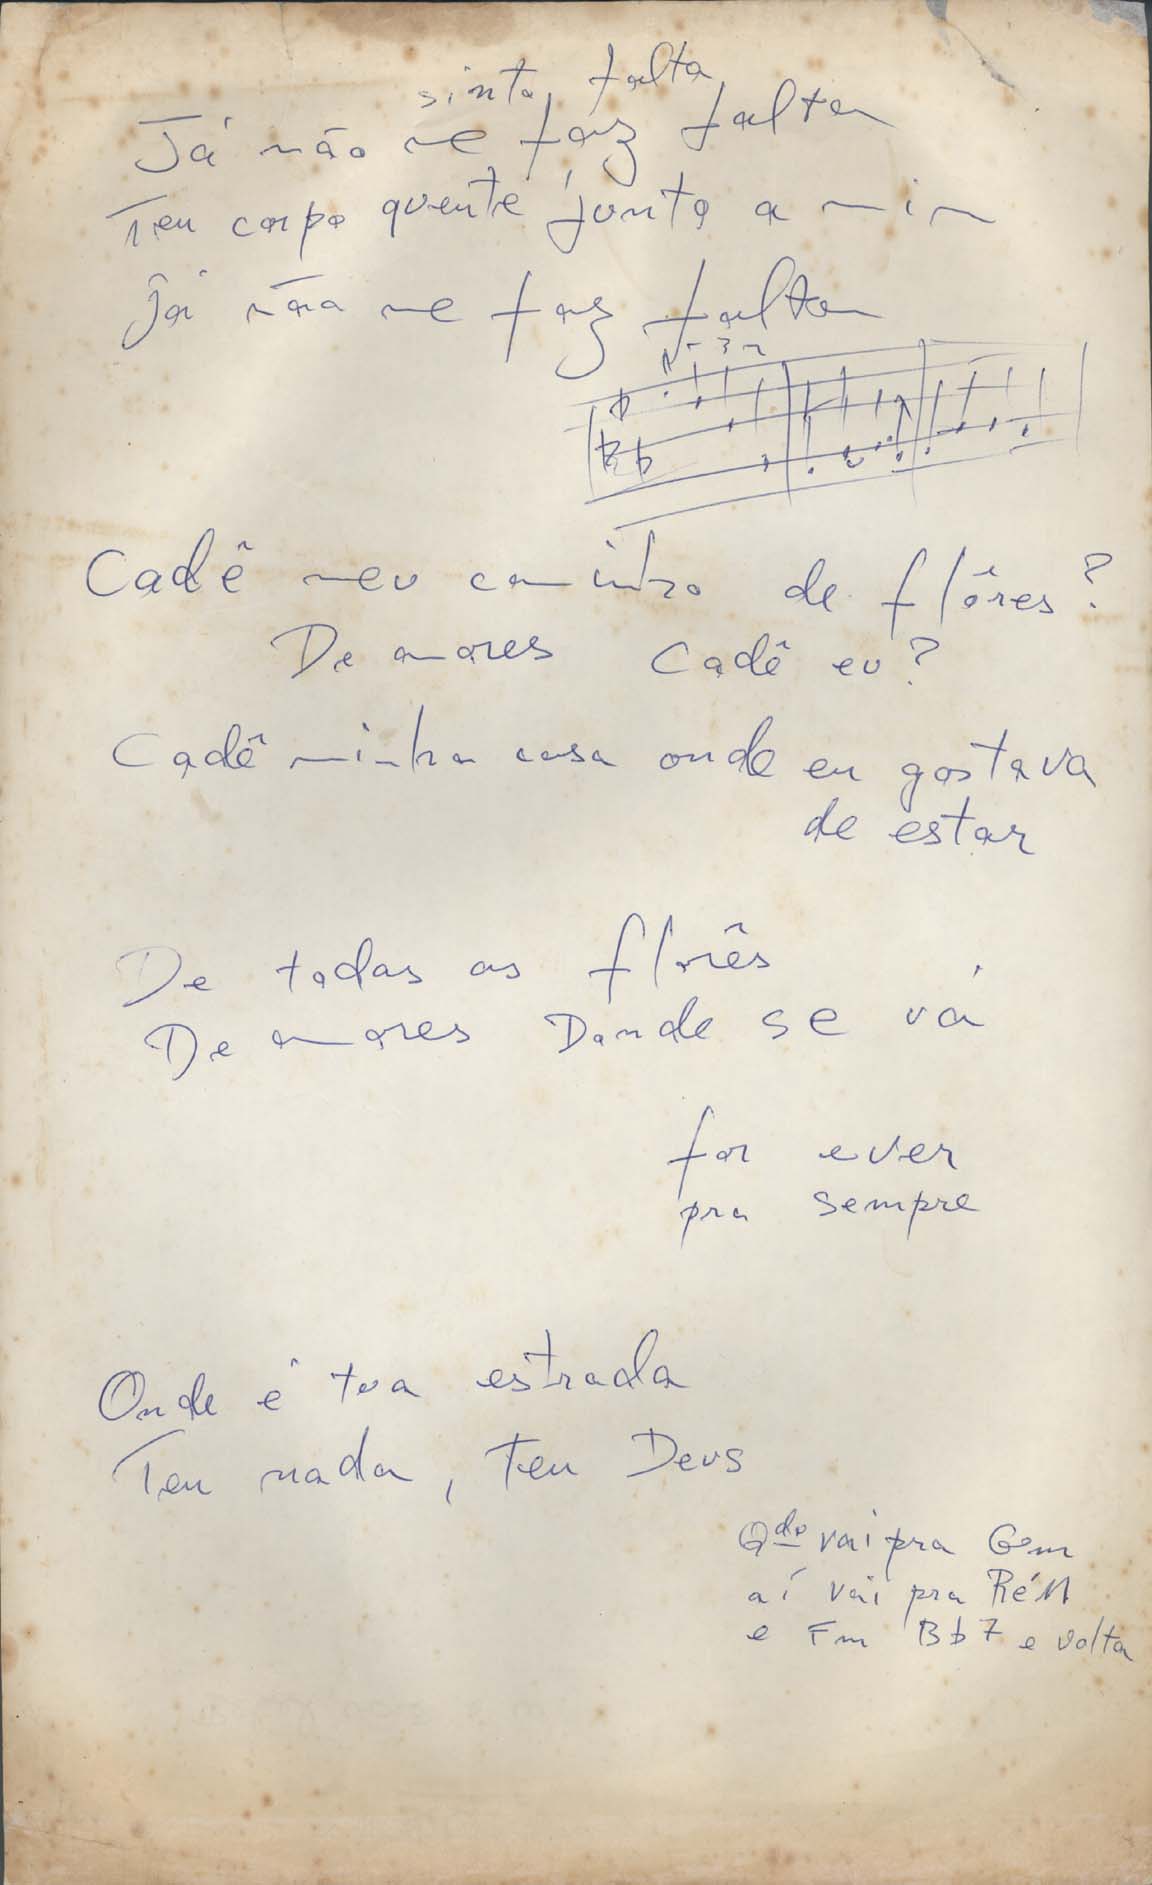 sinto falta
Já não me faz falta
Teu corpo quente junto a mim
Já não me faz falta
3
Cadê meu caminho de flôres?
De amores Cadê eu?
Cadê minha casa onde eu gostava
de estar
De todas as florês
De amores Donde se vá
for ever
pra sempre
Onde é tua estrada
Teu nada, teu Deus
Qdo vai pra Gm
aí vai pra RéM
e Fm Bb7 e volta